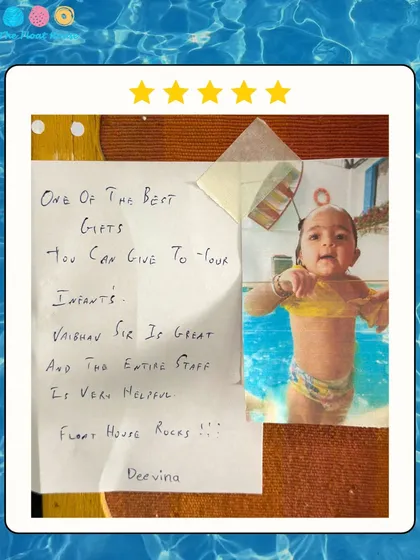 The Float House
ONE OF THE BEST
GIFTS
YOU CAN GIVE TO YOUR
INFANT'S.
VAIBHAV SIR IS GREAT
AND THE ENTIRE STAFF
IS VERY HELPFUL.
FLOAT HOUSE ROCKS !!!
Deevina